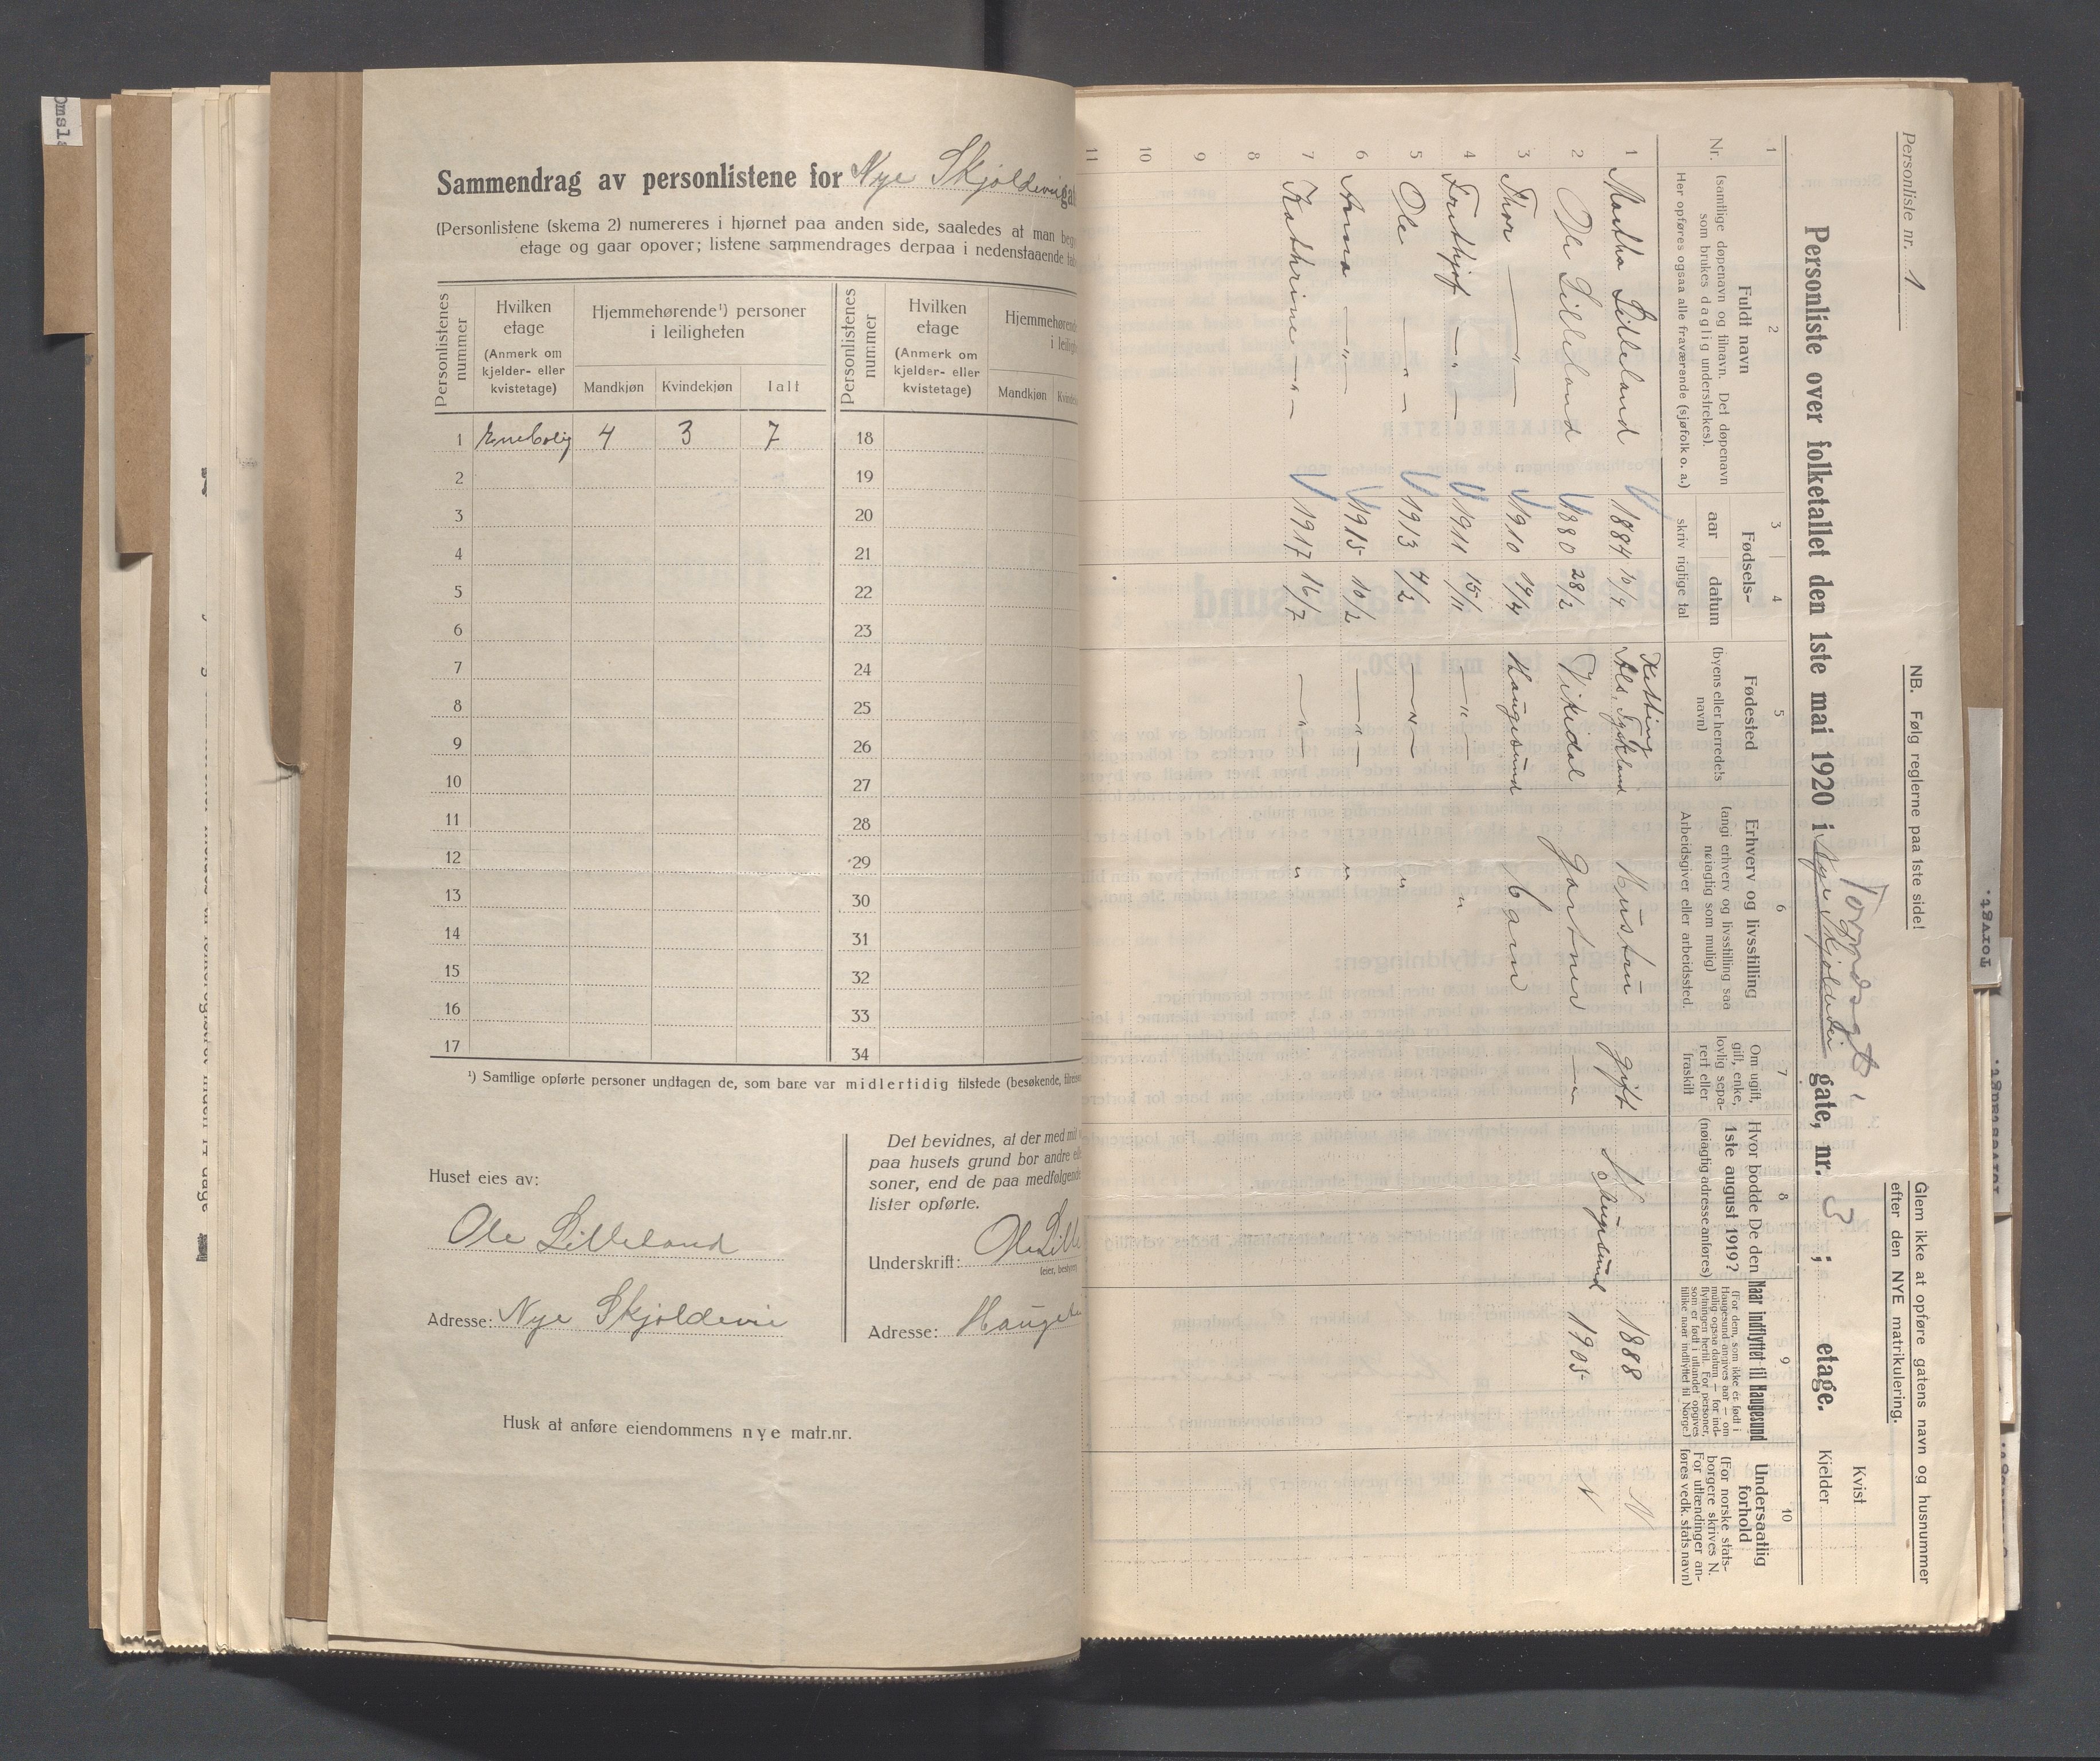 Omsl
Sammendrag av personlistene for Nye Skjoldevei gat
(Personlistene (skema 2) numereres i hjørnet paa anden side, saaledes at man beg
etage og gaar opover; listene sammendrages derpaa i nedenstaaende tab
Personlistenes nummer
Hvilken etage
(Anmerk om kjelder- eller kvistetage)
Hjemmehørende¹) personer i leiligheten
Mandkjøn Kvindekjøn Ialt
Personlistenes nummer
Hvilken etage
(Anmerk om kjelder- eller kvistetage)
Hjemmehørend
i leiligh
Mandkjøn Kvinde
1 Enebolig 4 3 7 18
2 19
3 20
4 21
5 22
6 23
7 24
8 25
9 26
10 27
11 28
12 29
13 30
14 31
15 32
16 33
17 34
¹) Samtlige opførte personer undtagen de, som bare var midlertidig tilstede (besøkende, tilreise
Huset eies av:
Ole Lilleland
Adresse: Nye Skjoldevei
Det bevidnes, at der med mit
paa husets grund bor andre el
soner, end de paa medfølgende
lister opførte.
Underskrift: Ole Lille
(eier, bestyrer)
Adresse: Hauges
Husk at anføre eiendommens nye matr.nr.
Personliste nr. 1
NB. Følg reglerne paa 1ste side!
Glem ikke at opføre gatens navn og husnummer
efter den NYE matrikulering.
Personliste over folketallet den 1ste mai 1920 i Nye Skjoldevei gate, nr. 3 ; etage.
Kvist
Kjelder
1 2 3 4 5 6 7 8 9 10
Nr.
Fuldt navn
(samtlige døpenavn og tilnavn. Det døpenavn
som brukes daglig understrekes).
Her opføres ogsaa alle fraværende (sjøfolk o. a.)
Fødsels-
aar datum
skriv rigtige tal
Fødested
(byens eller herredets
navn)
Erhverv og livsstilling
(angi erhverv og livsstilling saa
nøiagtig som mulig)
Arbeidsgiver eller arbeidssted.
Om ugift,
gift, enke,
lovlig sepa-
rert eller
fraskilt
Hvor bodde De den
1ste august 1919?
(nøiagtig adresse anføres)
Naar indflyttet til Haugesund
(For dem, som ikke er født i
Haugesund angives aar — om
mulig ogsaa datum — for ind-
flytningen hertil. For personer,
som er født i utlandet opgives
tillike naar indflyttet til Norge.)
Undersaatlig
forhold
(For norske stats-
borgere skrives N.
For utlændinger an-
føres vedk. stats navn)
1 Martha Lilleland 1884 10/9 Ketting Als. Tyskland Hustru gift Haugesund 1888 N
2 Ole Lilleland 1880 28/2 Vikedal Gartner — " 1905 N
3 Thor — " — 1910 Haugesund Barn
4 Frithjof — " — 1911 15/11 — " — "
5 Ole — " — 1913 4/2 — " — "
6 Anna — " — 1915 10/2 — " — "
7 Kathrine — " — 1917 16/7 — " — "
8
9
10
11
Torvgt.